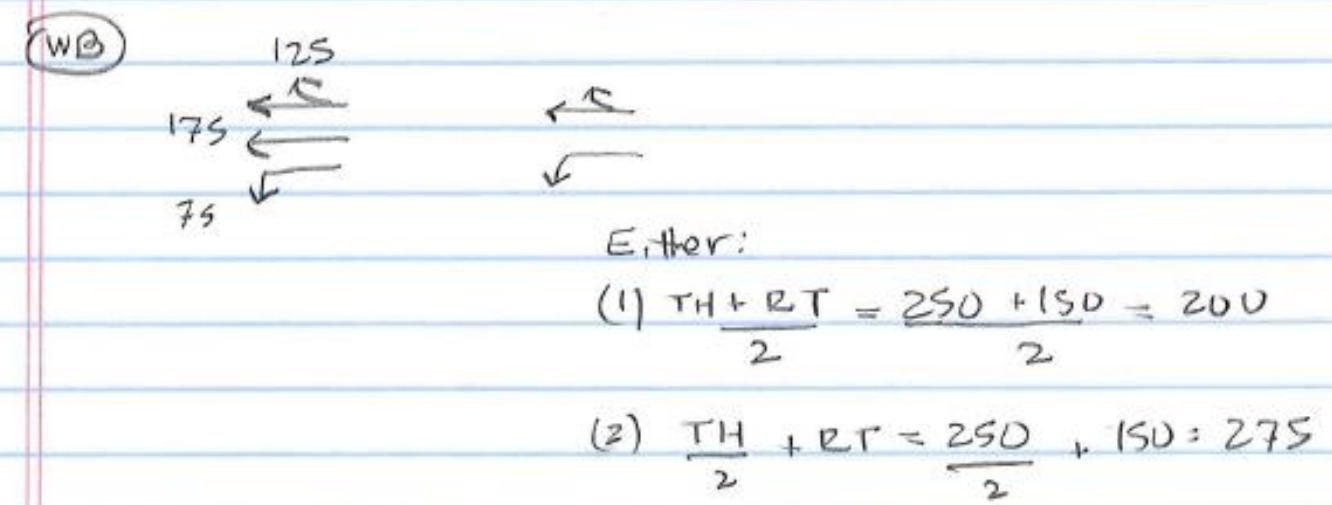 WB
125
175
75
Either:
(1) TH + RT / 2 = 250 + 150 / 2 = 200
(2) TH / 2 + RT = 250 / 2 + 150 = 275